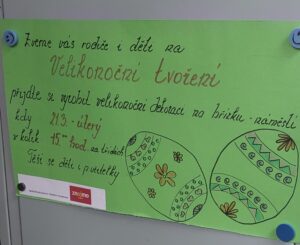 Zveme vás rodiče i děti na
Velikonoční tvoření
přijďte si vyrobit velikonoční dekoraci na hřišku - náměstí
kdy 21.3. - úterý
v kolik 15.00 hod. na třídách
Těší se děti i p. učitelky
znojmo